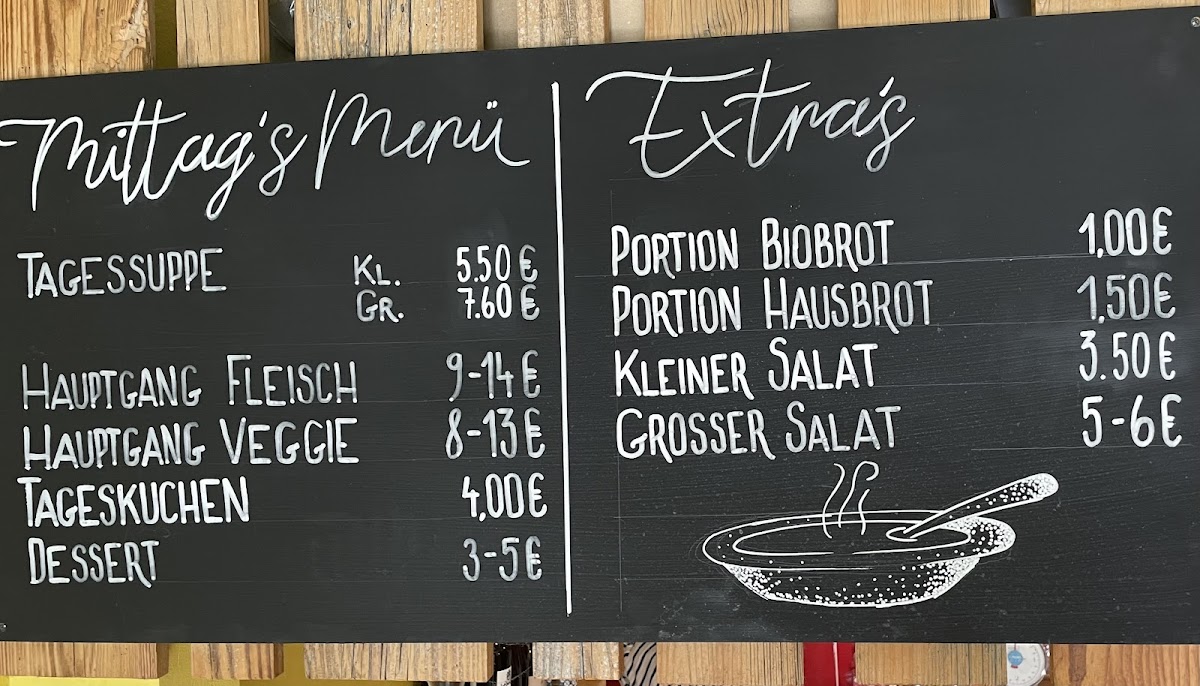 Mittag's Menü
TAGESSUPPE KL. 5.50 €
GR. 7.60 €
HAUPTGANG FLEISCH 9-14 €
HAUPTGANG VEGGIE 8-13 €
TAGESKUCHEN 4,00 €
DESSERT 3-5 €
Extra's
PORTION BIOBROT 1,00 €
PORTION HAUSBROT 1,50 €
KLEINER SALAT 3.50 €
GROSSER SALAT 5-6 €